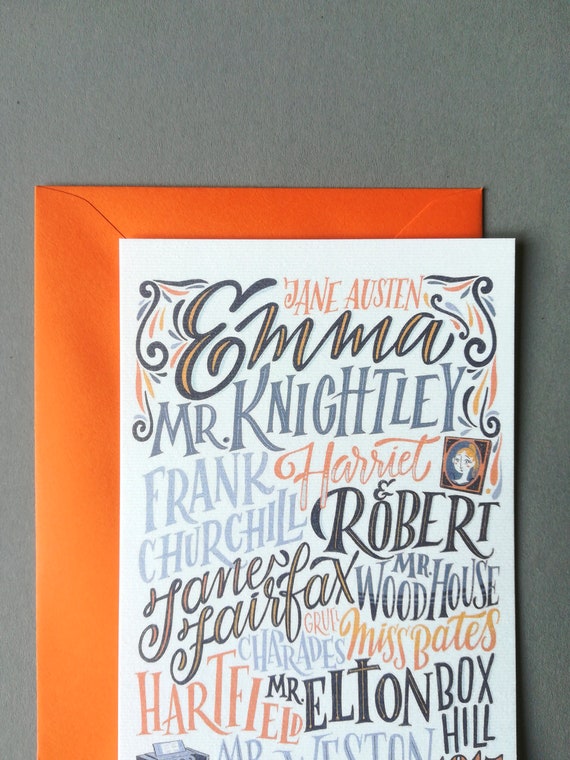 JANE AUSTEN
Emma
MR. KNIGHTLEY
FRANK CHURCHILL
Harriet
&
ROBERT
Jane Fairfax
MR. WOODHOUSE
GRUEL
CHARADES
Miss Bates
HARTFIELD
MR. ELTON
BOX HILL
MR. WESTON